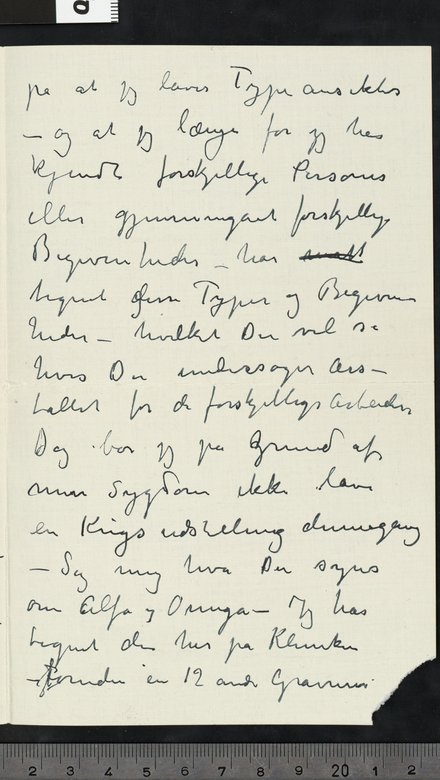 på at jeg laver Typeansikter
– og at jeg længe før jeg har
kjendt forskjellige Personer
eller gjennemgaat forskjellige
Begivenheder – har
tegnet disse Typer og Begiven
heder – hvilket Du vil se
hvis Du undersøger Års–
tallet for de forskjellige Arbeider
Dog bør jeg på Grund af
min Sygdom ikke lave
en Krigsudstilling dennegang
– Sig mig hva Du synes
om Alfa og Omega – Jeg har
tegnet den her på Kliniken
– foruden en 12 andre Gravurer